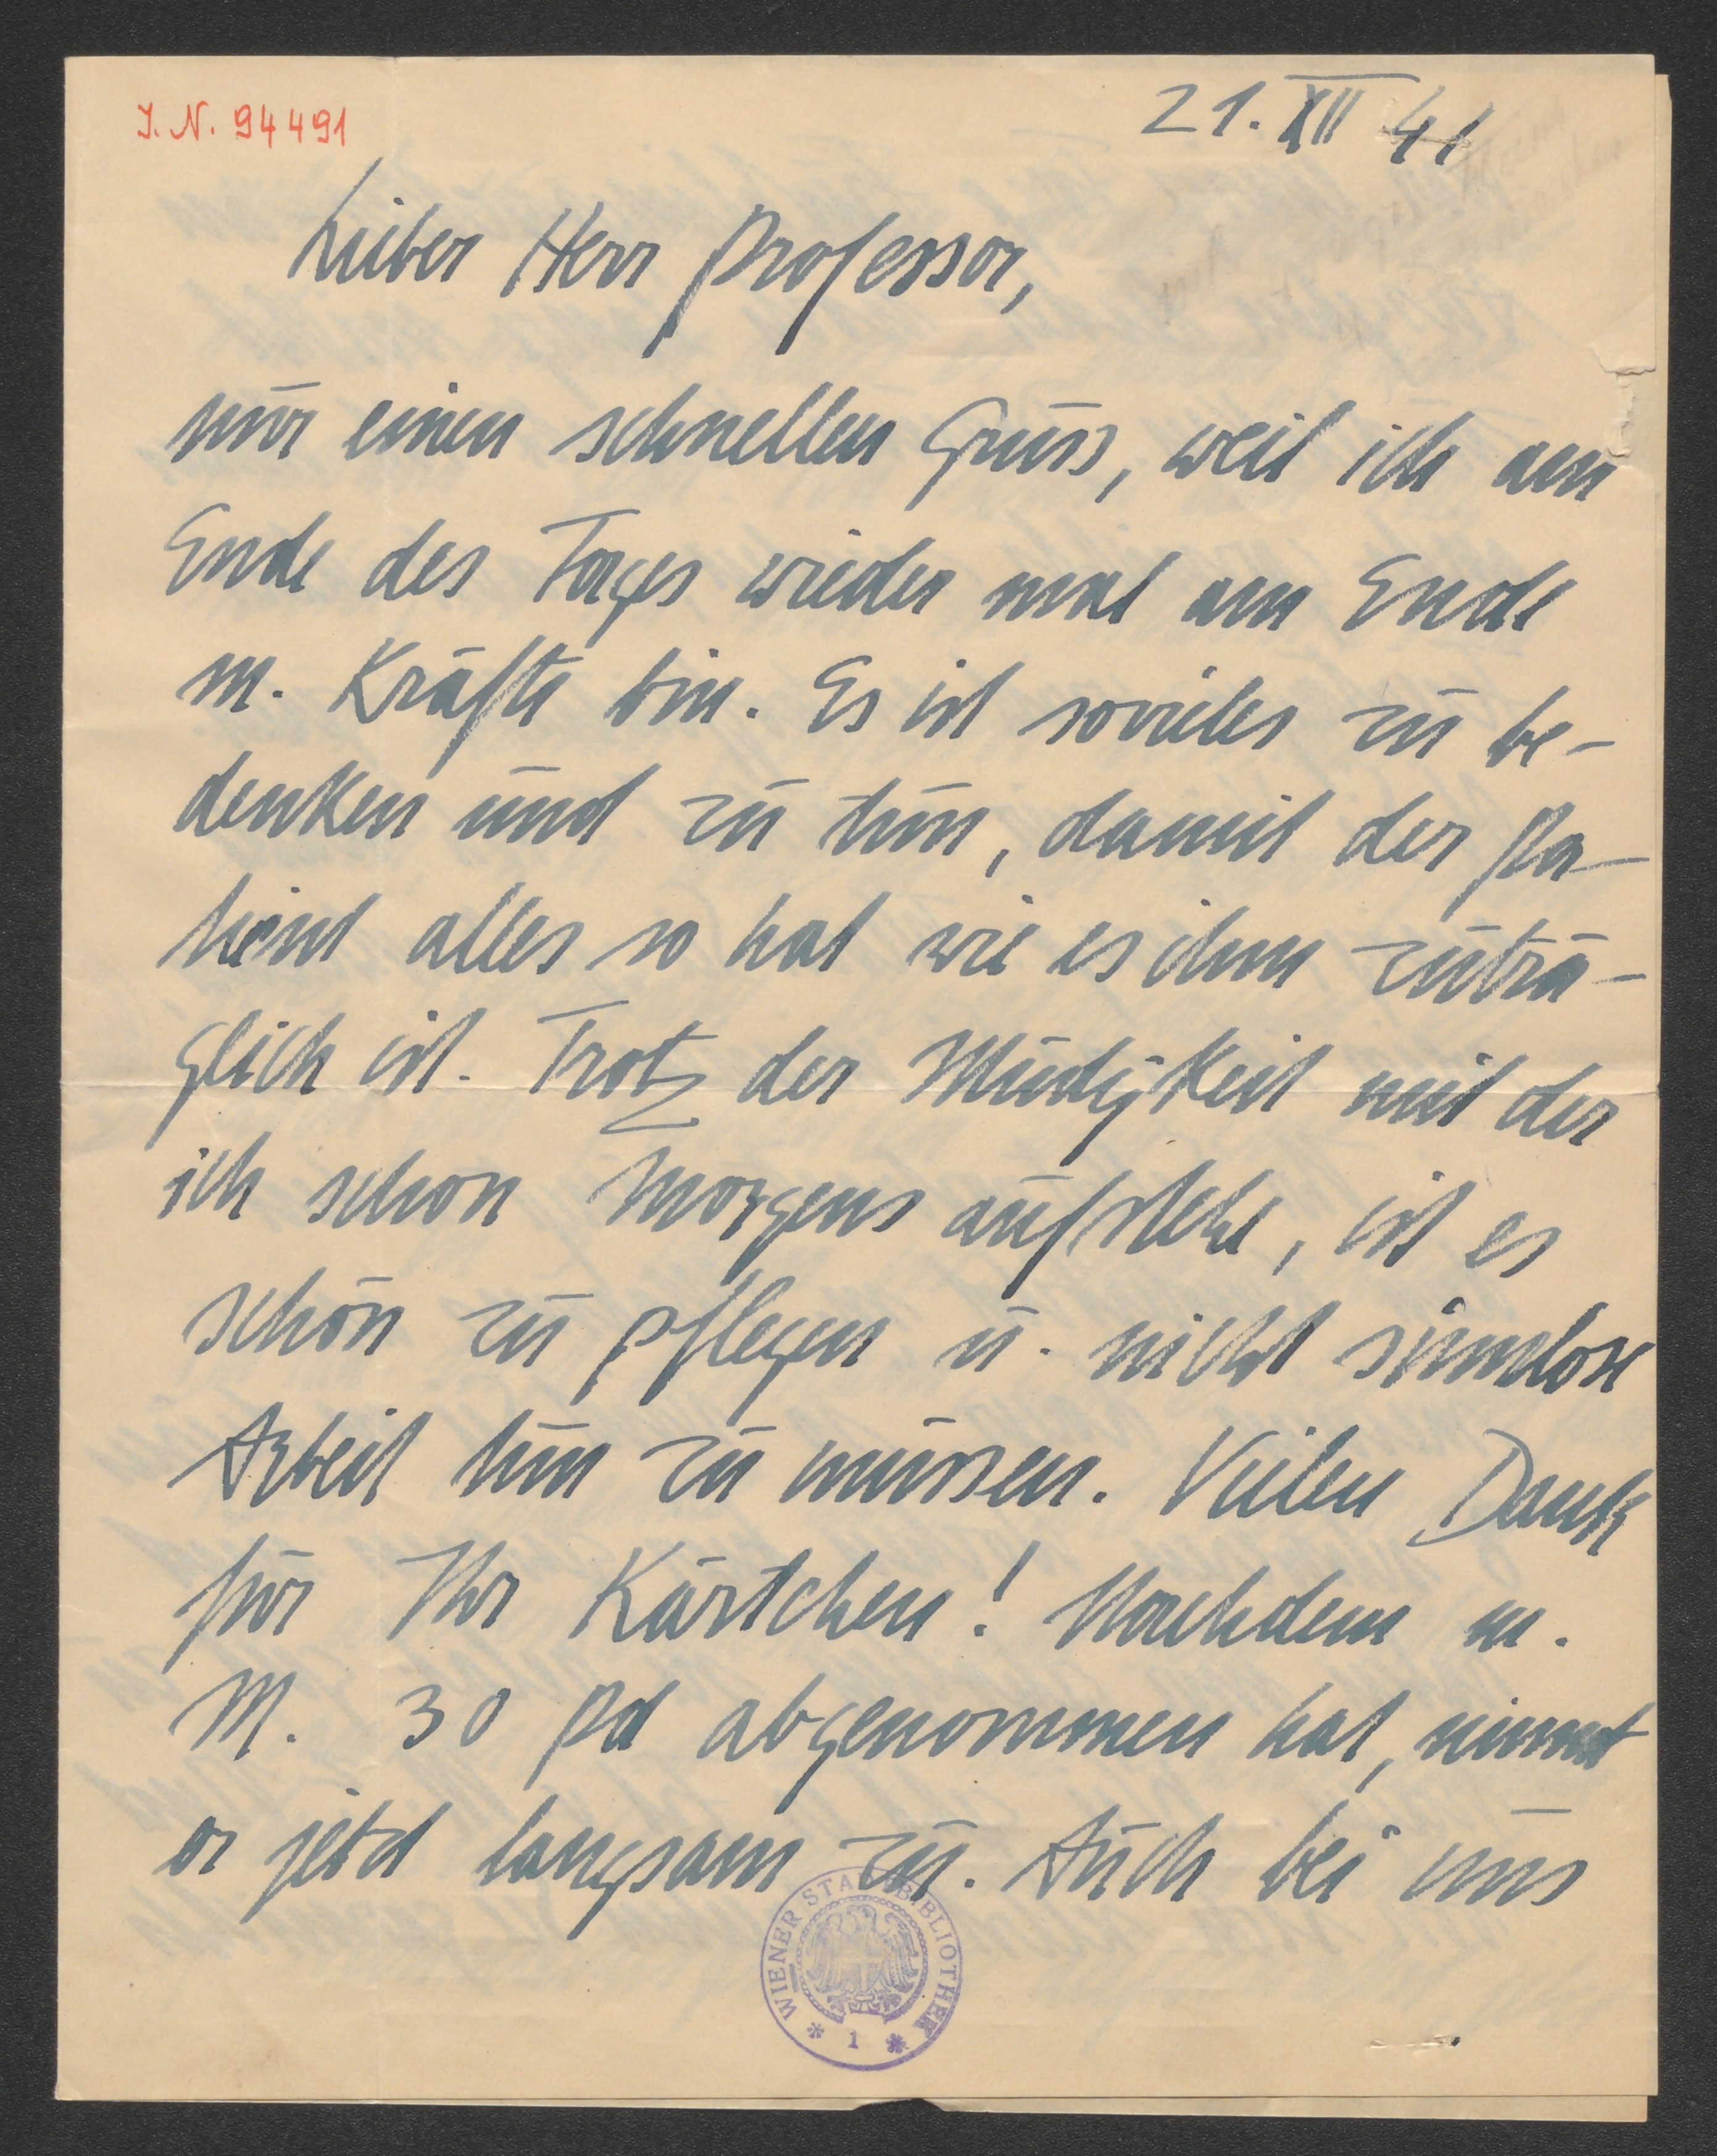 J. N. 94491
21. XII 41
Lieber Herr Professor,
nur einen schnellen Gruss, weil ich am
Ende des Tages wieder mal am Ende
m. Kräfte bin. Es ist sovieles zu be-
denken und zu tun, damit der Pa-
tient alles so hat wie es ihm zuträ-
glich ist. Trotz der Müdigkeit mit der
ich schon Morgens aufstehe, ist es
schön zu pflegen u. nicht sinnlose
Arbeit tun zu müssen. Vielen Dank
für Ihr Kärtchen! Nachdem m.
M. 30 Pd abgenommen hat, nimmt
er jetzt langsam zu. Auch bei uns
WIENER STADTBIBLIOTHEK
* 1 *